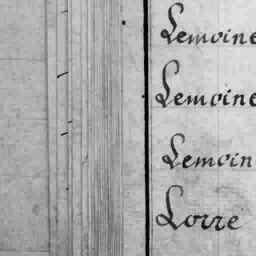 Lemoine
Lemoine
Lemoin
Lorre